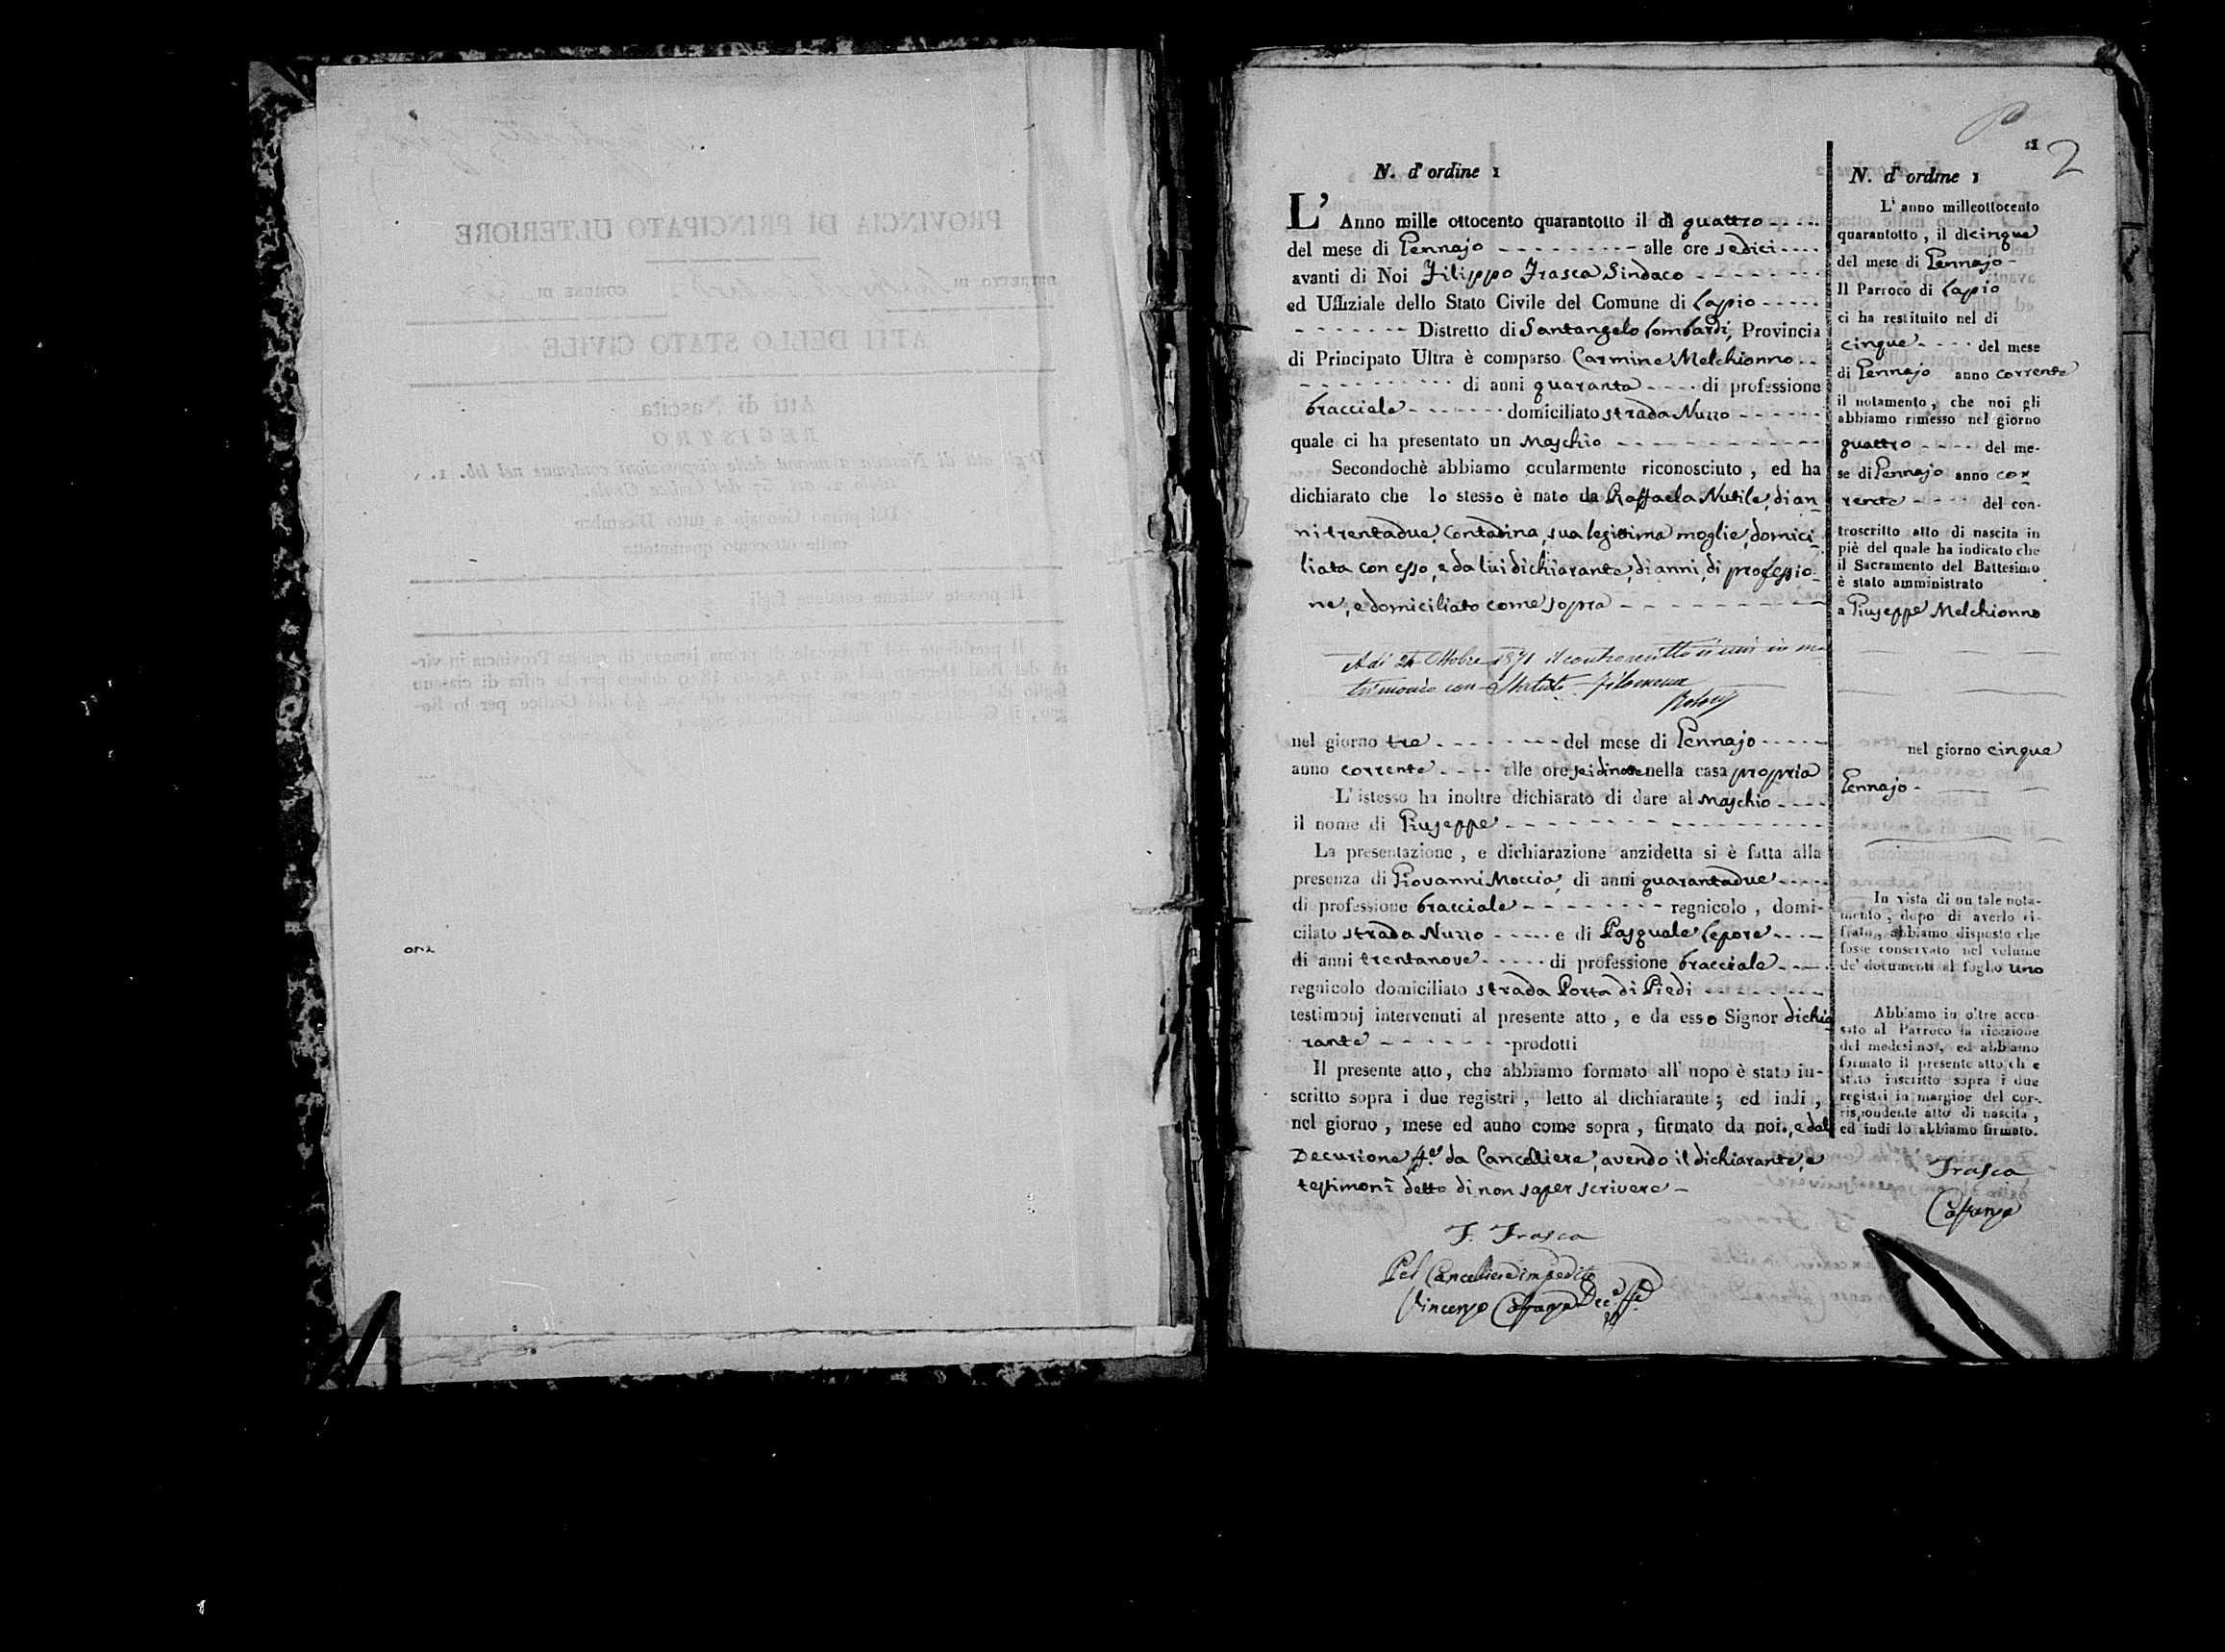 2
N. d'ordine 1
L'Anno mille ottocento quarantotto il dì quattro
del mese di Gennajo alle ore sedici
avanti di Noi Filippo Frasca Sindaco
ed Uffiziale dello Stato Civile del Comune di Lapio
Distretto di Santangelo Lombardi, Provincia
di Principato Ultra è comparso Carmine Melchionno
di anni quaranta di professione
bracciale domiciliato strada Nuzzo
quale ci ha presentato un Maschio
Secondochè abbiamo ocularmente riconosciuto, ed ha
dichiarato che lo stesso è nato da Raffaela Nutile, di an-
ni trentadue, Contadina, sua legittima moglie, domici-
liata con esso, e da lui dichiarante, di anni, di professio-
ne, e domiciliato come sopra
Adi 24 Ottobre 1871 il controscritto si unì in ma
trimonio con Filomena
nel giorno tre del mese di Gennajo
anno corrente alle ore sei di notte nella casa propria
L'istesso ha inoltre dichiarato di dare al Maschio
il nome di Giuseppe
La presentazione, e dichiarazione anzidetta si è fatta alla
presenza di Giovanni Moccia, di anni quarantadue
di professione bracciale regnicolo, domi-
cilato strada Nuzzo e di Pasquale Lepore
di anni trentanove di professione bracciale
regnicolo domiciliato strada Porta di Piedi
testimonj intervenuti al presente atto, e da esso Signor dichia
rante prodotti
Il presente atto, che abbiamo formato all' uopo è stato in-
scritto sopra i due registri, letto al dichiarante; ed indi,
nel giorno, mese ed anno come sopra, firmato da noi, e dal
Decurione ff.e da Cancelliere, avendo il dichiarante, e
testimonî detto di non saper scrivere
F. Frasca
Pel Cancelliere impedito
Vincenzo
N. d'ordine 1
L'anno milleottocento
quarantotto, il dì cinque
del mese di Gennajo
Il Parroco di Lapio
ci ha restituito nel di
cinque del mese
di Gennajo anno corrente
il notamento, che noi gli
abbiamo rimesso nel giorno
quattro del me-
se di Gennajo anno cor
rente del con-
troscritto atto di nascita in
piè del quale ha indicato che
il Sacramento del Battesimo
è stato amministrato
a Giuseppe Melchionno
nel giorno cinque
Gennajo
In vista di un tale nota-
mento, dopo di averlo ci-
frato, abbiamo disposto che
fosse conservato nel volume
de' documenti al foglio uno
Abbiamo in oltre accu-
sato al Parroco la ricezione
del medesimo, ed abbiamo
formato il presente atto ch e
stato inscritto sopra i due
registri in margine del cor-
rispondente atto di nascita,
ed indi lo abbiamo firmato.
Frasca